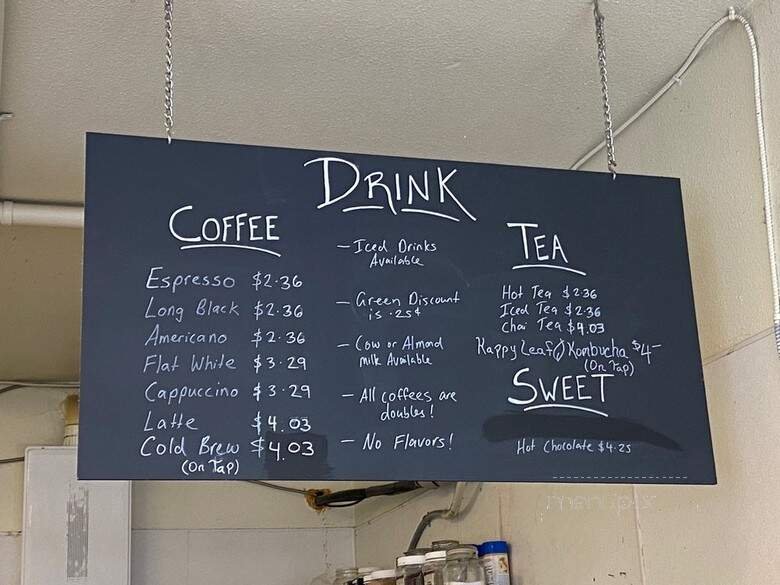 DRINK
COFFEE
Espresso $2.36
Long Black $2.36
Americano $2.36
Flat White $3.29
Cappuccino $3.29
Latte $4.03
Cold Brew $4.03
(On Tap)
- Iced Drinks
Available
- Green Discount
is .25¢
- Cow or Almond
milk Available
- All coffees are
doubles!
- No Flavors!
TEA
Hot Tea $2.36
Iced Tea $2.36
Chai Tea $4.03
Happy Leaf Kombucha $4-
(On Tap)
SWEET
Hot Chocolate $4.25